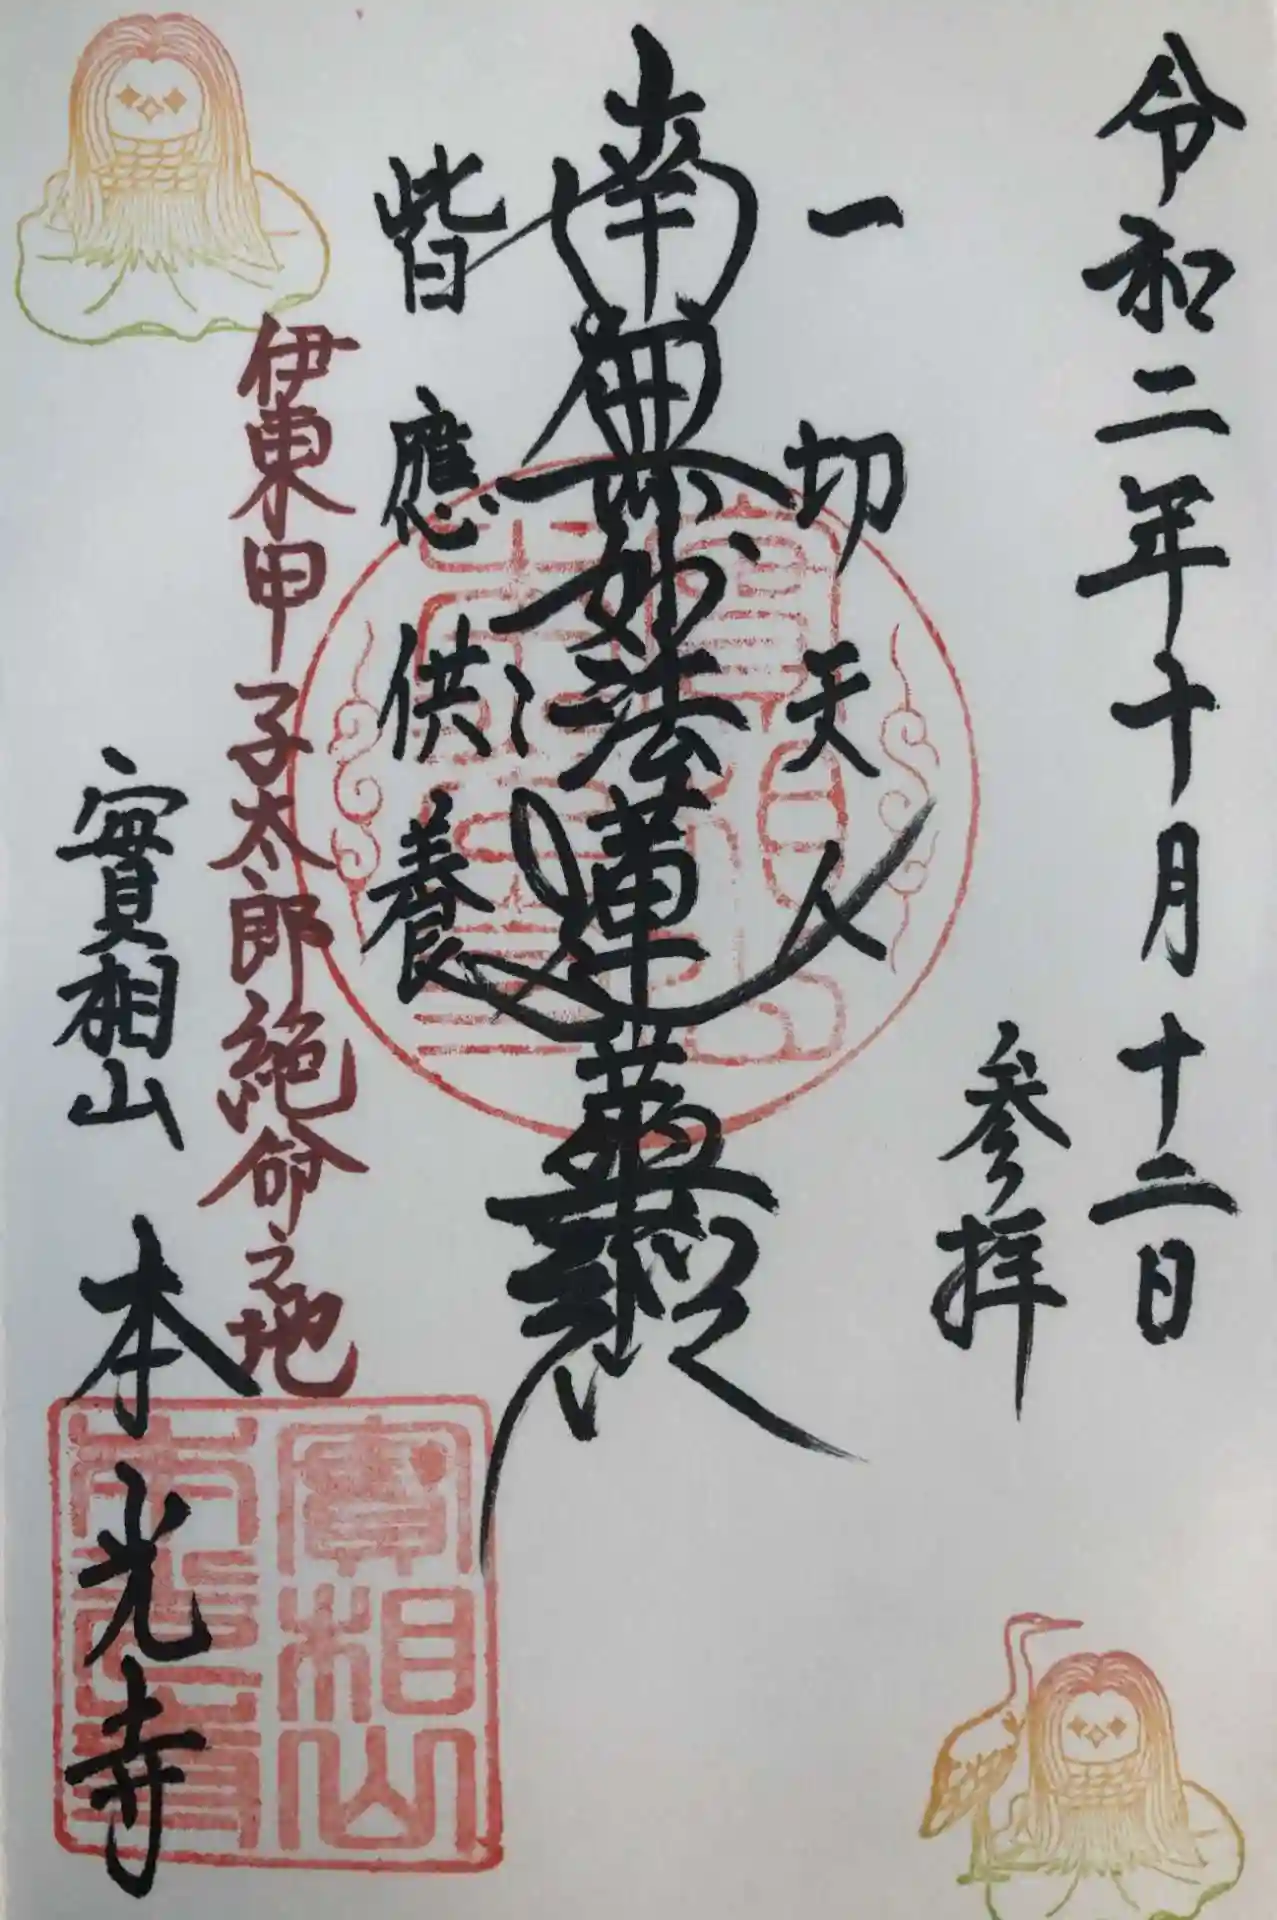 令和二年十月十二日
参拝
一切天人
南無妙法蓮華経
皆應供養
伊東甲子太郎絶命之地
實相山
本光寺
實相山
本光寺